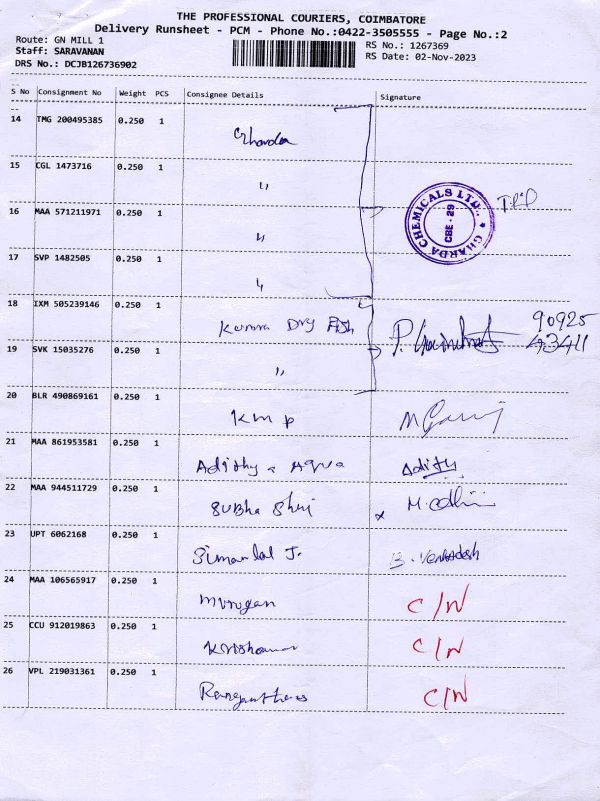 THE PROFESSIONAL COURIERS, COIMBATORE
Delivery Runsheet - PCM - Phone No.:0422-3505555 - Page No.:2
Route: GN MILL 1
RS No.: 1267369
Staff: SARAVANAN
RS Date: 02-Nov-2023
DRS No.: DCJB126736902
S No Consignment No Weight PCS Consignee Details Signature
14 TMG 200495385 0.250 1 Gharda
15 CGL 1473716 0.250 1 "
16 MAA 571211971 0.250 1 "
GHARDA CHEMICALS LTD. ★
CBE - 29
17 SVP 1482505 0.250 1 "
18 IXM 505239146 0.250 1 Kannra Dry Fish 90925
43411
19 SVK 15035276 0.250 1 "
20 BLR 490869161 0.250 1 KMP
21 MAA 861953581 0.250 1 Adithya Aqua Adithy
22 MAA 944511729 0.250 1 Subha Shri
23 UPT 6062168 0.250 1 Simanlal J. B. Venkadesh
24 MAA 106565917 0.250 1 Murugan C/N
25 CCU 912019863 0.250 1 C/N
26 VPL 219031361 0.250 1 C/N